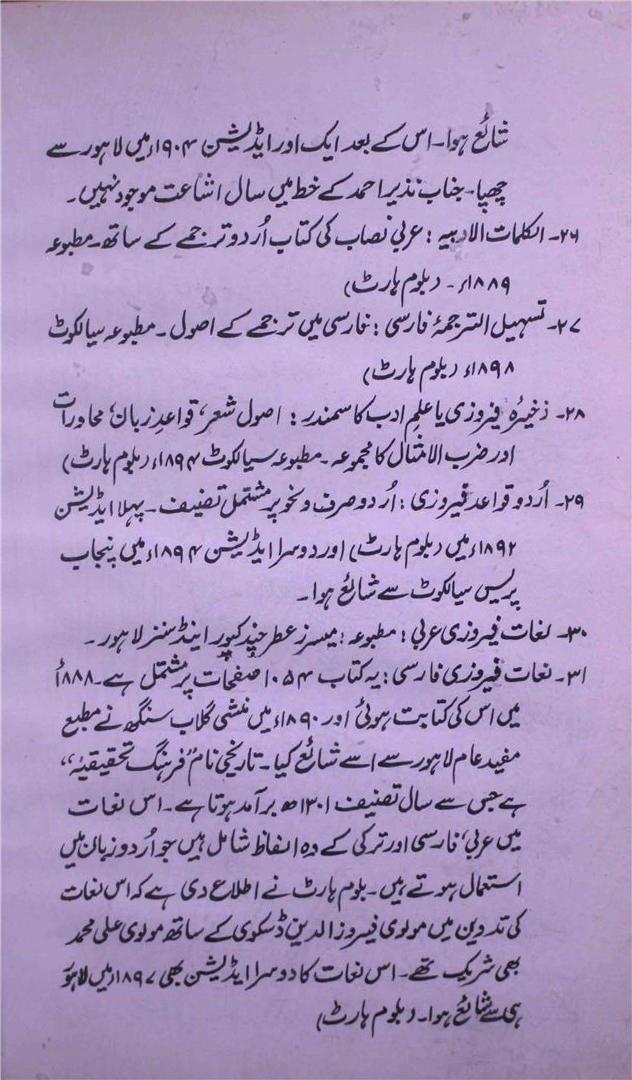 شائع ہوا۔ اس کے بعد ایک اور ایڈیشن ۱۹۰۴ء میں لاہور سے
چھپا۔ جناب نذیر احمد کے خط میں سال اشاعت موجود نہیں۔
۲۶۔ الکلمات الادبیہ : عربی نصاب کی کتاب اُردو ترجمے کے ساتھ۔ مطبوعہ
۱۸۸۹ء۔ (بلوم ہارٹ)
۲۷۔ تسہیل الترجمۂ فارسی : فارسی میں ترجمے کے اصول۔ مطبوعہ سیالکوٹ
۱۸۹۸ء (بلوم ہارٹ)
۲۸۔ ذخیرۂ فیروزی یا علم ادب کا سمندر : اصول شعر، قواعد زبان، محاورات
اور ضرب الامثال کا مجموعہ۔ مطبوعہ سیالکوٹ ۱۸۹۴ء (بلوم ہارٹ)
۲۹۔ اُردو قواعد فیروزی : اُردو صرف و نحو پر مشتمل تصنیف۔ پہلا ایڈیشن
۱۸۹۲ء میں (بلوم ہارٹ) اور دوسرا ایڈیشن ۱۸۹۴ء میں پنجاب
پریس سیالکوٹ سے شائع ہوا۔
۳۰۔ لغات فیروزی عربی : مطبوعہ : میسرز عطر چند کپور اینڈ سنز لاہور۔
۳۱۔ لغات فیروزی فارسی : یہ کتاب ۱۰۵۴ صفحات پر مشتمل ہے۔ ۱۸۸۸ء
میں اس کی کتابت ہوئی اور ۱۸۹۰ء میں منشی گلاب سنگھ نے مطبع
مفید عام لاہور سے اسے شائع کیا۔ تاریخی نام "فرہنگ تحقیقیہ"
ہے جس سے سال تصنیف ۱۳۰۱ھ برآمد ہوتا ہے۔ اس لغات
میں عربی، فارسی اور ترکی کے وہ الفاظ شامل ہیں جو اُردو زبان میں
استعمال ہوتے ہیں۔ بلوم ہارٹ نے اطلاع دی ہے کہ اس لغات
کی تدوین میں مولوی فیروز الدین ڈسکوی کے ساتھ مولوی علی محمد
بھی شریک تھے۔ اس لغات کا دوسرا ایڈیشن بھی ۱۸۹۷ء میں لاہور
ہی سے شائع ہوا۔ (بلوم ہارٹ)